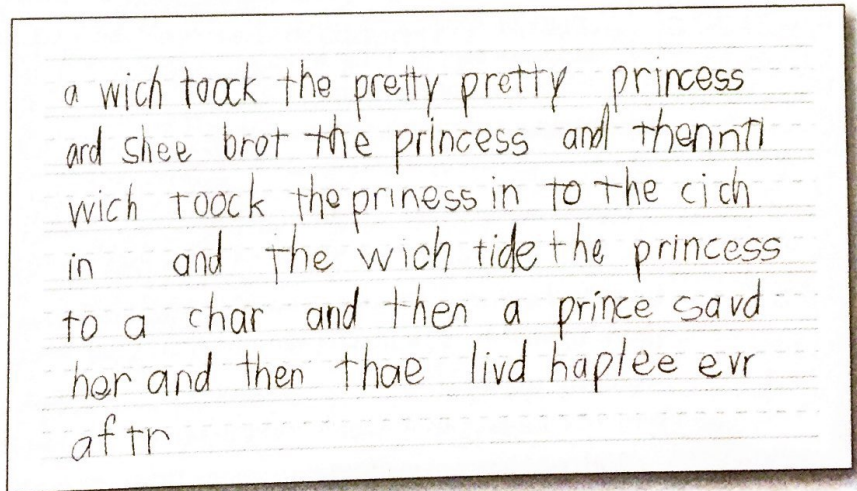 a wich toock the pretty pretty princess
ard shee brot the princess and
wich toock the priness in to the cich
in and the wich tide the princess
to a char and then a prince savd
her and then thae livd haplee evr
aftr